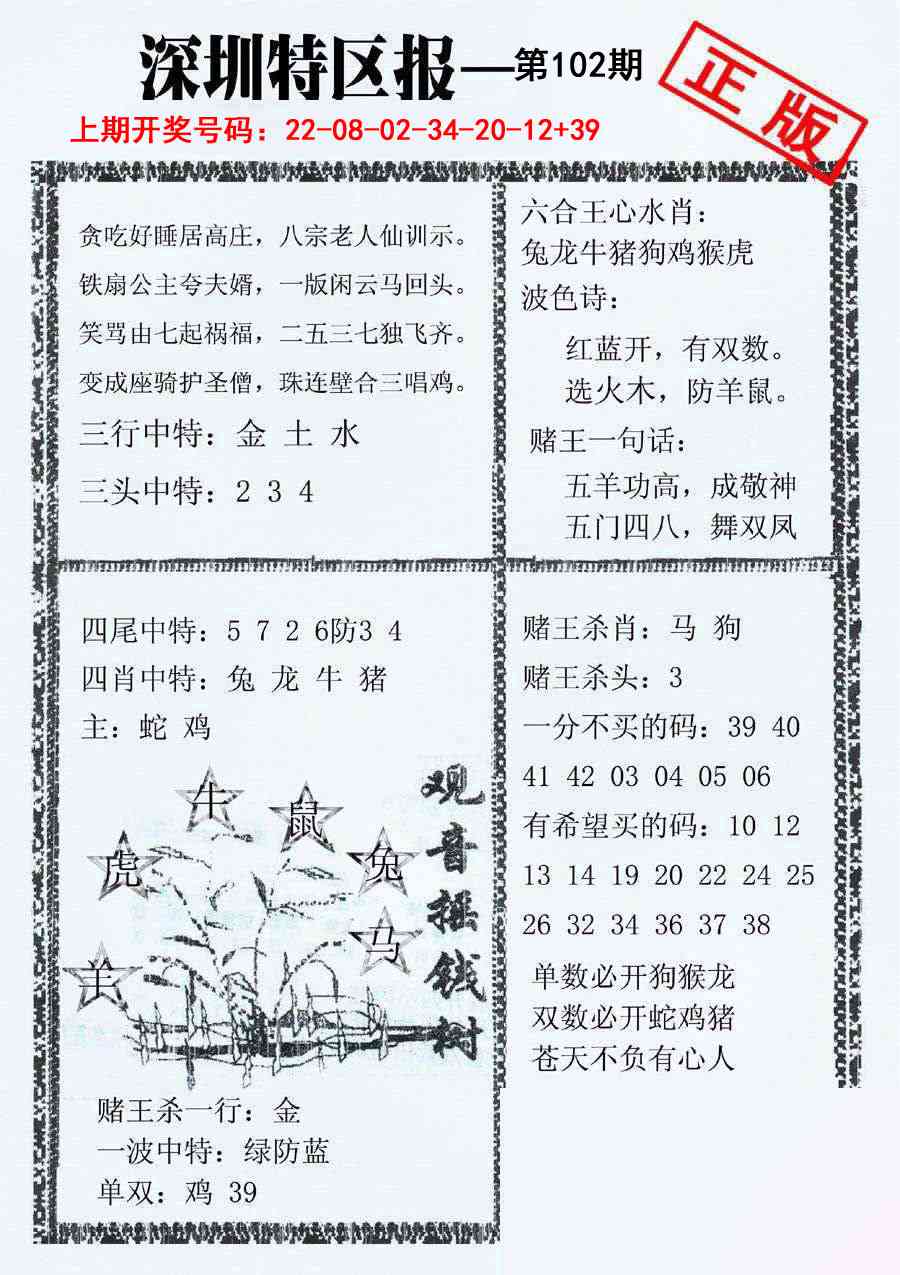 深圳特区报—第102期
正版
上期开奖号码：22-08-02-34-20-12+39
贪吃好睡居高庄，八宗老人仙训示。
铁扇公主夸夫婿，一版闲云马回头。
笑骂由七起祸福，二五三七独飞齐。
变成座骑护圣僧，珠连壁合三唱鸡。
三行中特：金 土 水
三头中特：2 3 4
六合王心水肖：
兔龙牛猪狗鸡猴虎
波色诗：
红蓝开，有双数。
选火木，防羊鼠。
赌王一句话：
五羊功高，成敬神
五门四八，舞双凤
四尾中特：5 7 2 6防3 4
四肖中特：兔 龙 牛 猪
主：蛇 鸡
牛
鼠
虎
兔
马
羊
观音摇钱树
赌王杀一行：金
一波中特：绿防蓝
单双：鸡 39
赌王杀肖：马 狗
赌王杀头：3
一分不买的码：39 40
41 42 03 04 05 06
有希望买的码：10 12
13 14 19 20 22 24 25
26 32 34 36 37 38
单数必开狗猴龙
双数必开蛇鸡猪
苍天不负有心人